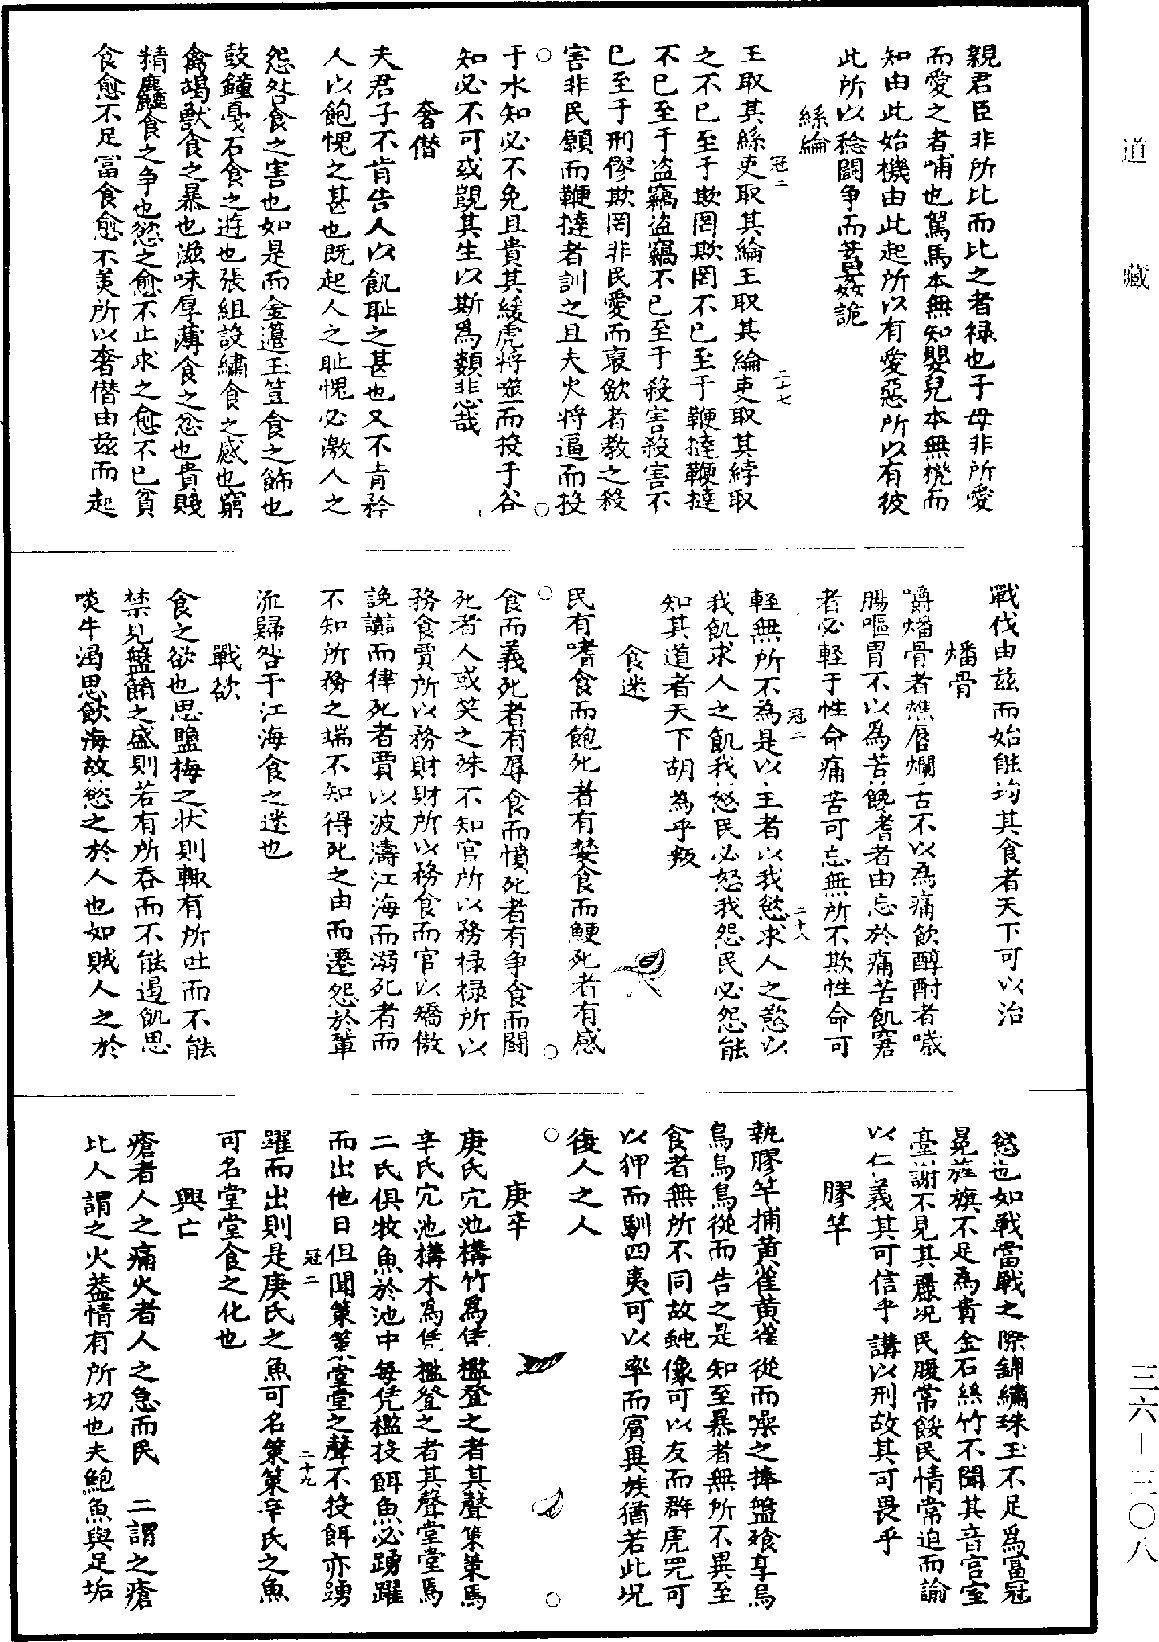 道藏
親君臣非所比而比之者祿也子母非所愛
而愛之者哺也駕馬本無知嬰兒本無機而
知由此始機由此起所以有愛惡所以有彼
此所以稔鬪争而蓄姦詭
絲綸
王取其絲吏取其綸王取其綸吏取其綍取
冠二
二七
之不已至于欺罔欺罔不已至于鞭撻鞭撻
不已至于盗竊盗竊不已至于殺害殺害不
已至于刑僇欺罔非民愛而裒斂者教之殺
害非民願而鞭撻者訓之且夫火將逼而投
于水知必不免且貴其緩虎將噬而投于谷
知必不可或覬其生以斯為類悲哉
奢僭
夫君子不肯告人以飢耻之甚也又不肯矜
人以飽愧之甚也既起人之耻愧必激人之
怨咎食之害也如是而金籩玉豆食之飾也
鼓鐘戛石食之遊也張組設繡食之感也窮
禽竭獸食之暴也滋味厚薄食之忿也貴賤
精麤食之争也慾之愈不止求之愈不已貧
食愈不足富食愈不美所以奢僭由茲而起
戰伐由茲而始能均其食者天下可以治
燔骨
嚼燔骨者燋唇爛舌不以為痛飲醇酎者嘰
腸嘔胃不以為苦饞耆者由忘於痛苦飢窘
者必輕于性命痛苦可忘無所不欺性命可
輕無所不為是以主者以我慾求人之慾以
冠二
二十八
我飢求人之飢我怒民必怒我怨民必怨能
知其道者天下胡為乎叛
食迷
民有嗜食而飽死者有婪食而鯁死者有感
食而義死者有辱食而憤死者有争食而鬪
死者人或笑之殊不知官所以務祿祿所以
務食賈所以務財財所以務食而官以矯傲
讒謟而律死者賈以波濤江海而溺死者而
不知所務之端不知得死之由而遷怨於輩
流歸咎于江海食之迷也
戰欲
食之欲也思鹽梅之状則輙有所吐而不能
禁見盤餚之盛則若有所吞而不能遏飢思
啖牛渴思飲海故慾之於人也如賊人之於
慾也如戰當戰之際錦繡珠玉不足為富冠
冕旌旗不足為貴金石絲竹不聞其音宫室
臺榭不見其麗况民腹常餒民情常迫而諭
以仁義其可信乎講以刑故其可畏乎
膠竿
執膠竿捕黃雀黃雀從而噪之捧盤飱享烏
烏烏烏從而告之是知至暴者無所不異至
食者無所不同故蛇像可以友而群虎兕可
以狎而馴四夷可以率而賓異族猶若此况
復人之人
庚辛
庚氏穴池構竹為凭檻登之者其聲策策焉
辛氏穴池構木為凭檻登之者其聲堂堂焉
二氏俱牧魚於池中每凭檻投餌魚必踴躍
而出他日但聞策策堂堂之聲不投餌亦踴
冠二
二十九
躍而出則是庚氏之魚可名策策辛氏之魚
可名堂堂食之化也
興亡
瘡者人之痛火者人之急而民 二謂之瘡
比人謂之火葢情有所切也夫鮑魚與足垢
三六—三〇八